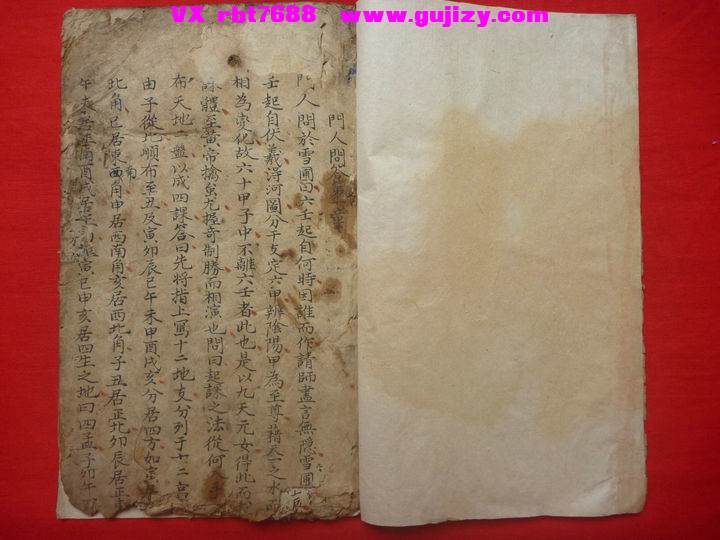 VX rbt7688 www.gujizy.com
門人問答第一章
門人問於雪圃曰六壬起自何時因誰而作請師盡言無隐雪圃曰
壬起自伏羲淂河圖分干支定六甲辨陰陽甲為至尊藉天一之水
相為变化故六十甲子中不離六壬者此也是以九天元女得此而
課體至黄帝擒蚩尤握奇制勝而相演也問曰起課之法從何
布天地二盤以成四課答曰先將指上寫十二地支分列于十二宫
由子從北順布至丑及寅卯辰巳午未申酉戌亥分居四方如寅居
北角巳居東南角申居西南角亥居西北角子丑居正北卯辰居正東
午未居正南酉戌居正 寅巳申亥居四生之地曰四孟子卯午